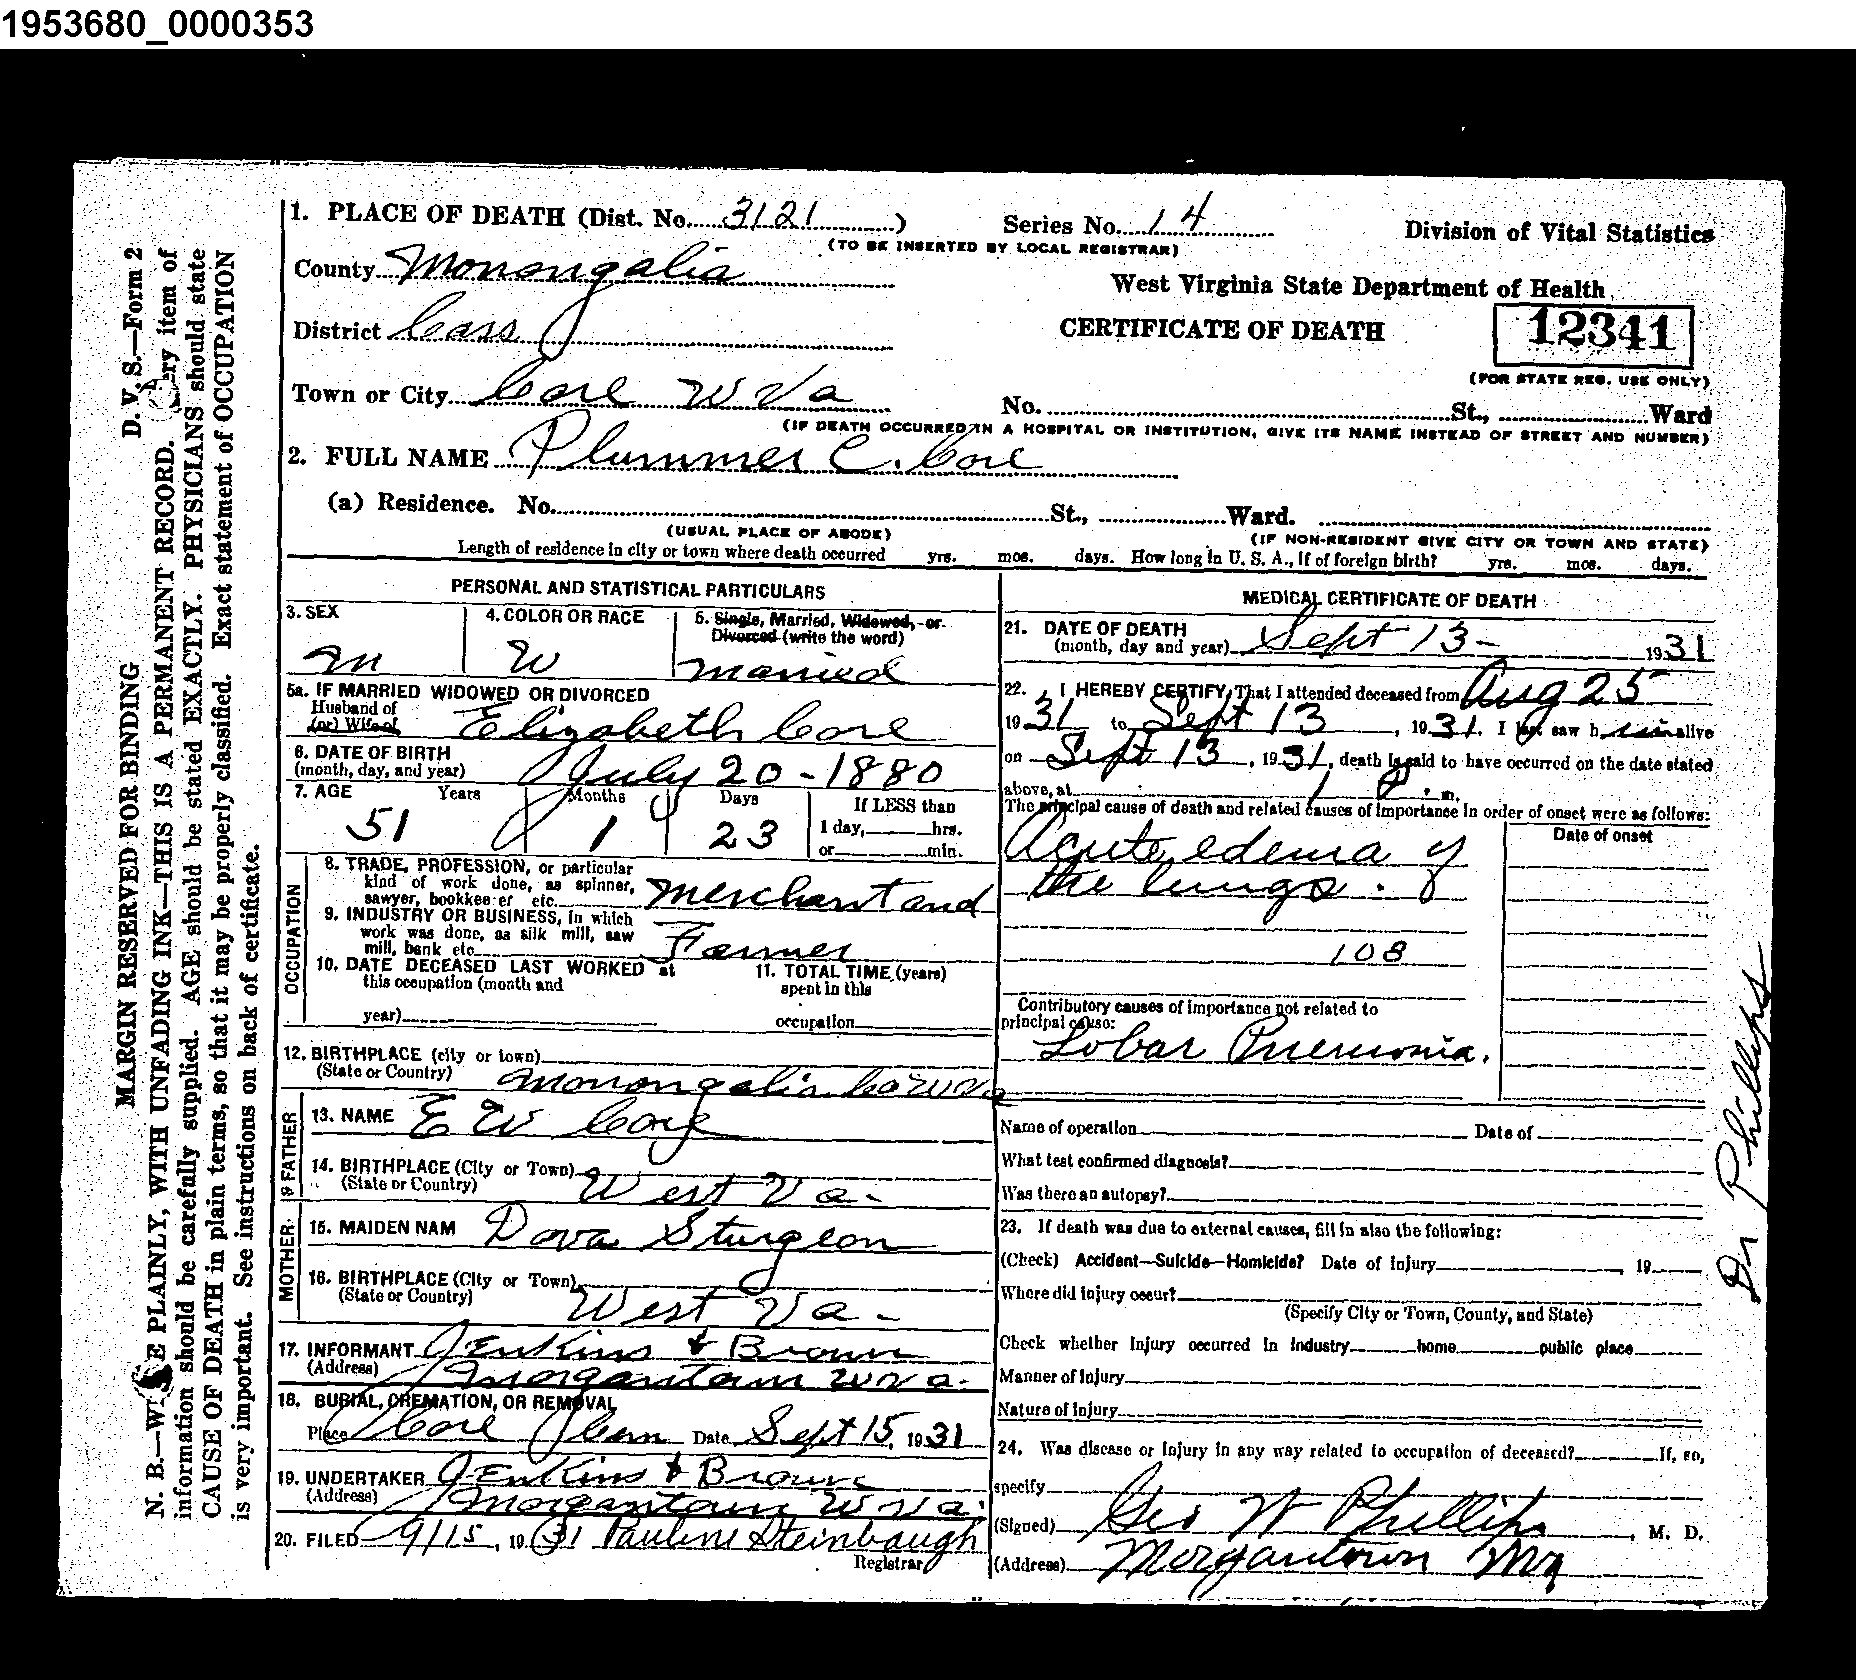 1953680_0000353
1. PLACE OF DEATH (Dist. No. 3121 ) Series No. 14 Division of Vital Statistics
(TO BE INSERTED BY LOCAL REGISTRAR)
County Monongalia West Virginia State Department of Health
District Cass CERTIFICATE OF DEATH 12341
(FOR STATE REG. USE ONLY)
Town or City Core W Va No. St., Ward
(IF DEATH OCCURRED IN A HOSPITAL OR INSTITUTION, GIVE ITS NAME INSTEAD OF STREET AND NUMBER)
2. FULL NAME Plummer C. Core
(a) Residence. No. St., Ward.
(USUAL PLACE OF ABODE) (IF NON-RESIDENT GIVE CITY OR TOWN AND STATE)
Length of residence in city or town where death occurred yrs. mos. days. How long in U. S. A., if of foreign birth? yrs. mos. days.
PERSONAL AND STATISTICAL PARTICULARS
3. SEX 4. COLOR OR RACE 5. Single, Married, Widowed, or
Divorced (write the word)
M W Married
5a. IF MARRIED WIDOWED OR DIVORCED
Husband of
(or) Wife of Elizabeth Core
6. DATE OF BIRTH
(month, day, and year) July 20 - 1880
7. AGE Years Months Days If LESS than
51 1 23 1 day, hrs.
or min.
OCCUPATION
8. TRADE, PROFESSION, or particular
kind of work done, as spinner,
sawyer, bookkeeper etc. Merchant and
9. INDUSTRY OR BUSINESS, in which
work was done, as silk mill, saw
mill, bank etc. Farmer
10. DATE DECEASED LAST WORKED at 11. TOTAL TIME (years)
this occupation (month and spent in this
year) occupation
12. BIRTHPLACE (city or town)
(State or Country) Monongalia Co W Va
FATHER
13. NAME E W Core
14. BIRTHPLACE (City or Town)
(State or Country) West Va -
MOTHER
15. MAIDEN NAM Dova Sturgeon
16. BIRTHPLACE (City or Town)
(State or Country) West Va -
17. INFORMANT Jenkins & Brown
(Address) Morgantown W Va.
18. BURIAL, CREMATION, OR REMOVAL
Place Core Cem Date Sept 15, 1931
19. UNDERTAKER Jenkins & Brown
(Address) Morgantown W Va.
20. FILED 9/15, 1931 Pauline Steinbaugh
Registrar
MEDICAL CERTIFICATE OF DEATH
21. DATE OF DEATH
(month, day and year) Sept 13 - 1931
22. I HEREBY CERTIFY, That I attended deceased from Aug 25
1931 to Sept 13, 1931. I last saw him alive
on Sept 13, 1931, death is said to have occurred on the date stated
above, at 1 P. m.
The principal cause of death and related causes of importance in order of onset were as follows:
Date of onset
Acute edema of
the lungs.
108
Contributory causes of importance not related to
principal cause:
Lobar Pneumonia.
Name of operation Date of
What test confirmed diagnosis?
Was there an autopsy?
23. If death was due to external causes, fill in also the following:
(Check) Accident—Suicide—Homicide? Date of injury , 19
Where did injury occur?
(Specify City or Town, County, and State)
Check whether injury occurred in industry home public place
Manner of Injury
Nature of Injury
24. Was disease or injury in any way related to occupation of deceased? If, so,
specify
(Signed) Geo W Phillips , M. D.
(Address) Morgantown
Dr Phillips
MARGIN RESERVED FOR BINDING D. V. S.—Form 2
N. B.—W E PLAINLY, WITH UNFADING INK—THIS IS A PERMANENT RECORD. ery item of
information should be carefully supplied. AGE should be stated EXACTLY. PHYSICIANS should state
CAUSE OF DEATH in plain terms, so that it may be properly classified. Exact statement of OCCUPATION
is very important. See instructions on back of certificate.